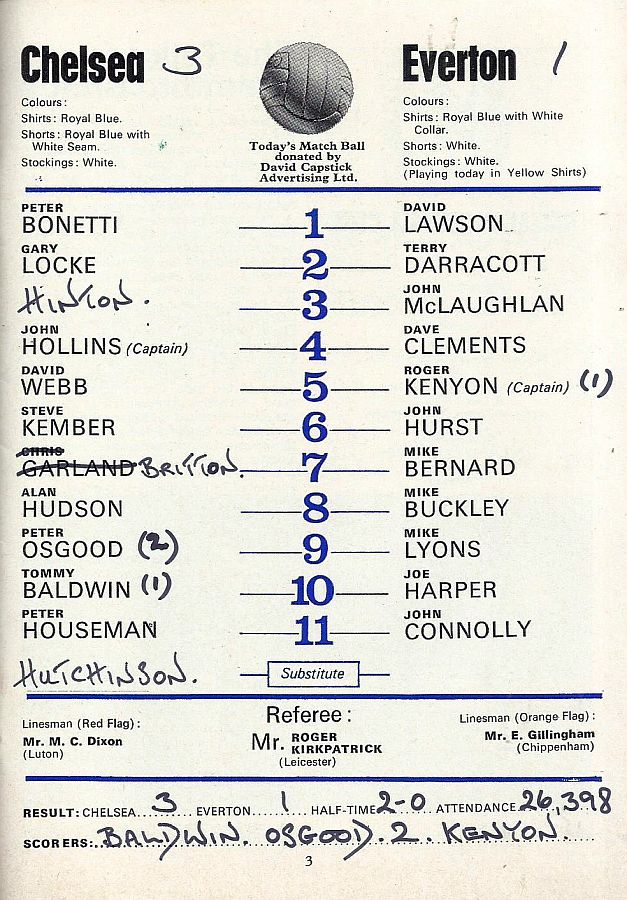 Chelsea 3
Everton 1
Colours:
Shirts: Royal Blue.
Shorts: Royal Blue with
White Seam.
Stockings: White.
Today's Match Ball
donated by
David Capstick
Advertising Ltd.
Colours:
Shirts: Royal Blue with White
Collar.
Shorts: White.
Stockings: White.
(Playing today in Yellow Shirts)
PETER
BONETTI
1
DAVID
LAWSON
GARY
LOCKE
2
TERRY
DARRACOTT
HINTON.
3
JOHN
McLAUGHLAN
JOHN
HOLLINS (Captain)
4
DAVE
CLEMENTS
DAVID
WEBB
5
ROGER
KENYON (Captain) (1)
STEVE
KEMBER
6
JOHN
HURST
CHRIS
GARLAND BRITTON.
7
MIKE
BERNARD
ALAN
HUDSON
8
MIKE
BUCKLEY
PETER
OSGOOD (2)
9
MIKE
LYONS
TOMMY
BALDWIN (1)
10
JOE
HARPER
PETER
HOUSEMAN
11
JOHN
CONNOLLY
HUTCHINSON.
Substitute
Linesman (Red Flag):
Mr. M. C. Dixon
(Luton)
Referee:
Mr. ROGER KIRKPATRICK
(Leicester)
Linesman (Orange Flag):
Mr. E. Gillingham
(Chippenham)
RESULT: CHELSEA 3 EVERTON 1 HALF-TIME 2-0 ATTENDANCE 26,398
SCORERS: BALDWIN. OSGOOD. 2. KENYON.
3